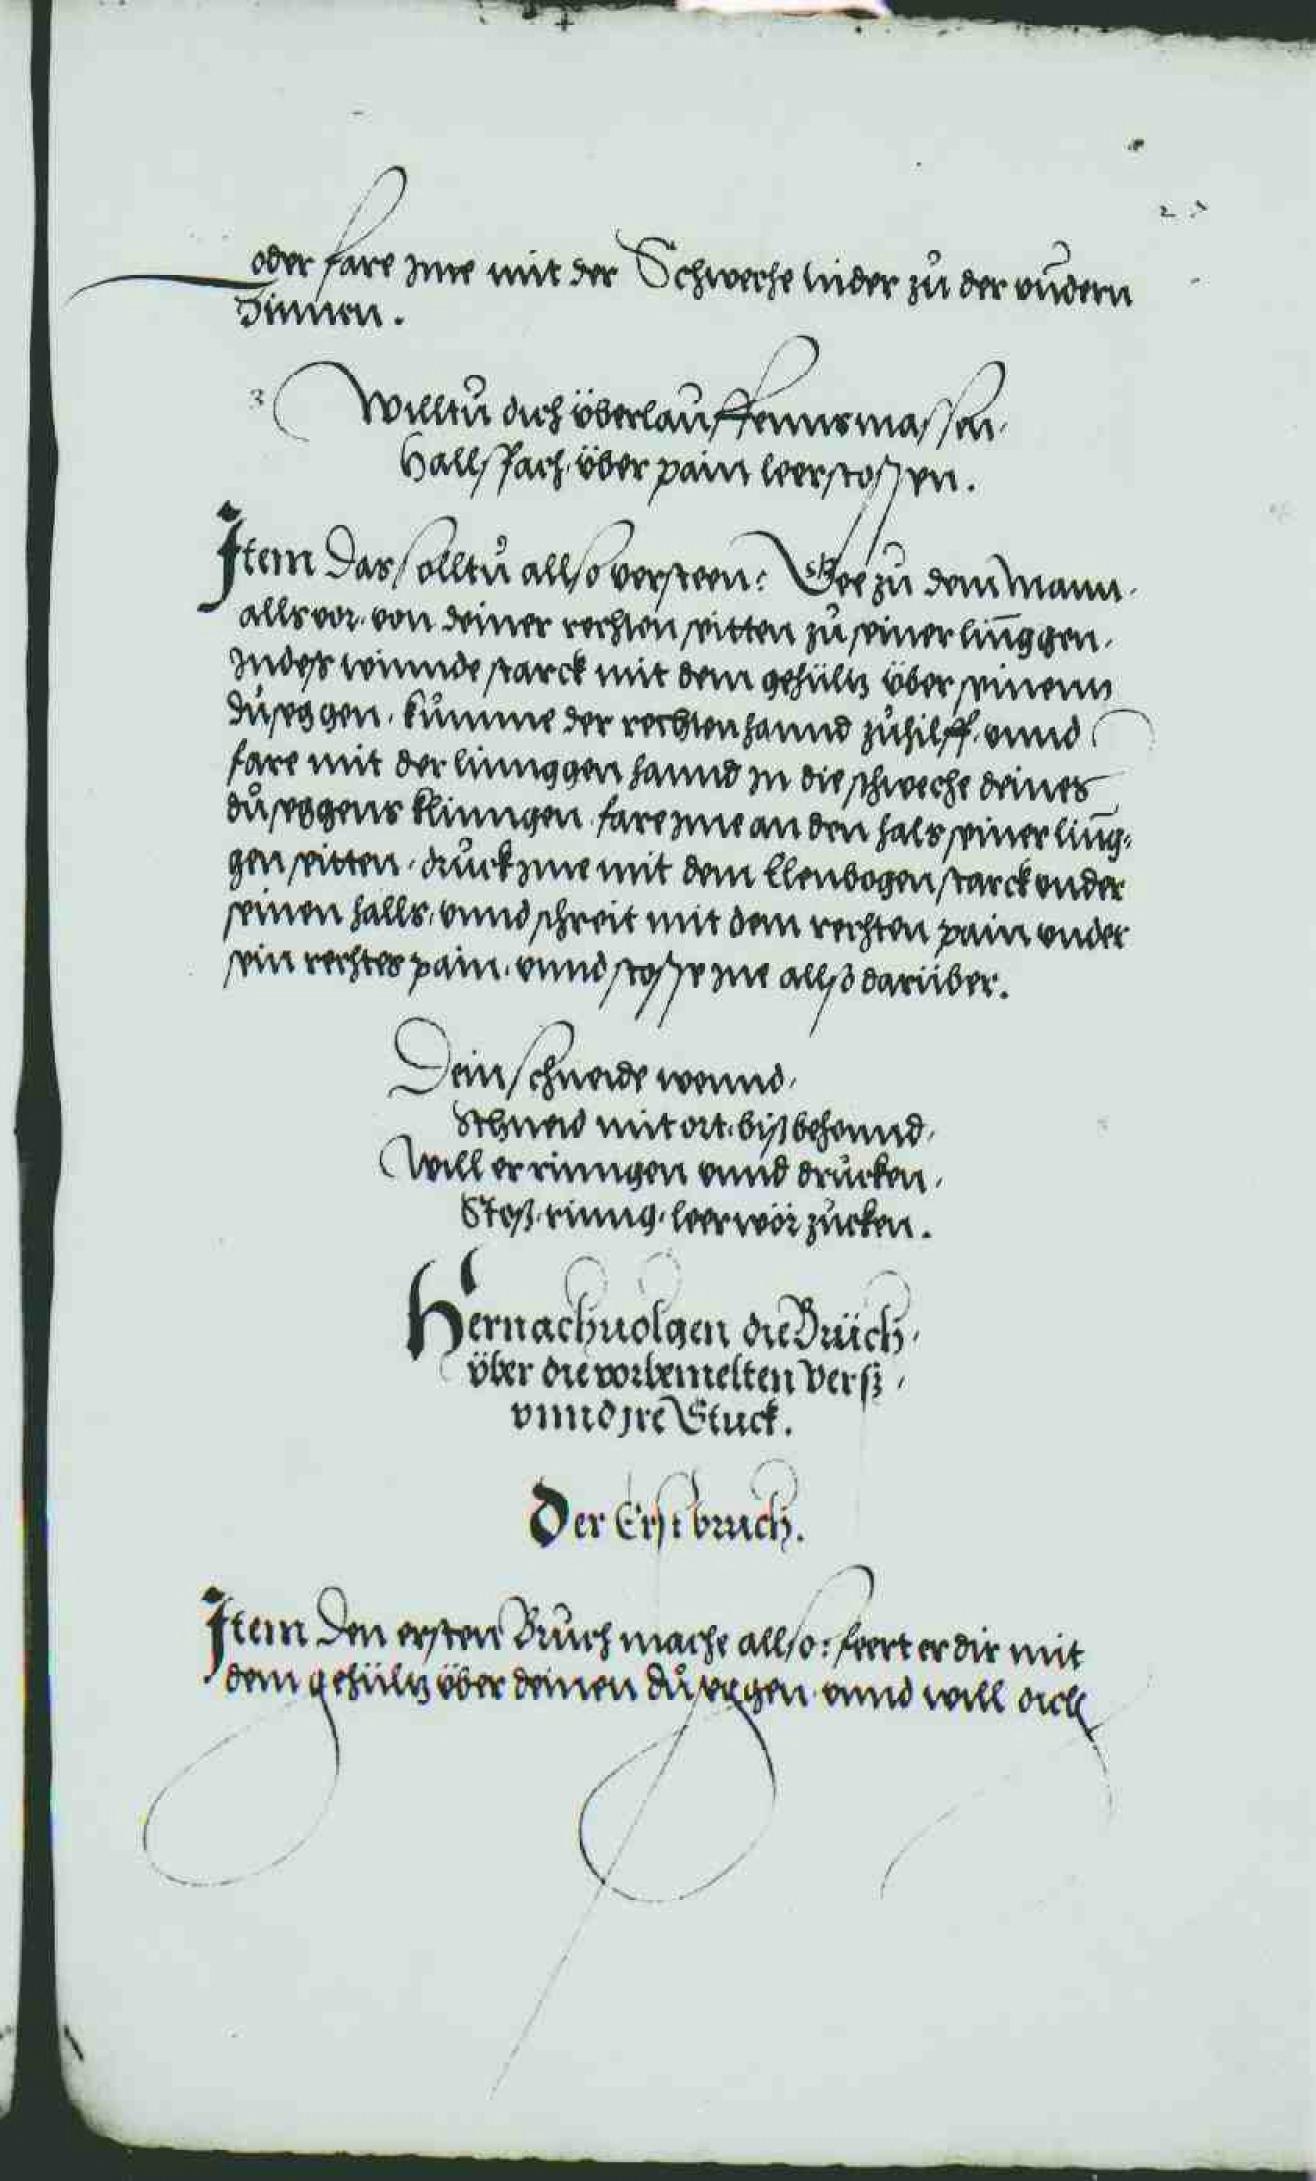 oder fare jme mit der Schweche nider zů der vndern
Zinnen.
3 Willtu dich überlauffenns massen,
Halls fach, über pain leer stossen.
Item das solltu allso versteen: Gee zů dem Mann,
alls vor, von deiner rechten seitten zů seiner linggen,
Jndes winnde starck mit dem gehültz über seinenn
důseggen, kumme der rechten hannd zůhilff, vnnd
fare mit der linnggen hannd jn die schweche deines
důseggens klinngen, fare jme an den hals seiner ling-
gen seitten, druck jme mit dem Elenbogen starck vnder
seinen halls, vnnd schreit mit dem rechten pain vnder
sein rechtes pain, vnnd stosse jne allso darüber.
Dein schneide wennd,
Schneid mit ort, biß behennd,
Will er rinngen vnnd drucken,
Stoß, rinng, leer wör zucken.
Hernachuolgen die Brüch,
über die vorbemelten Versß,
vnnd jre Stuck.
Der Erst bruch.
Item Den ersten Bruch mache allso: feert er dir mit
dem gehültz über deinen důseggen, vnnd will dich